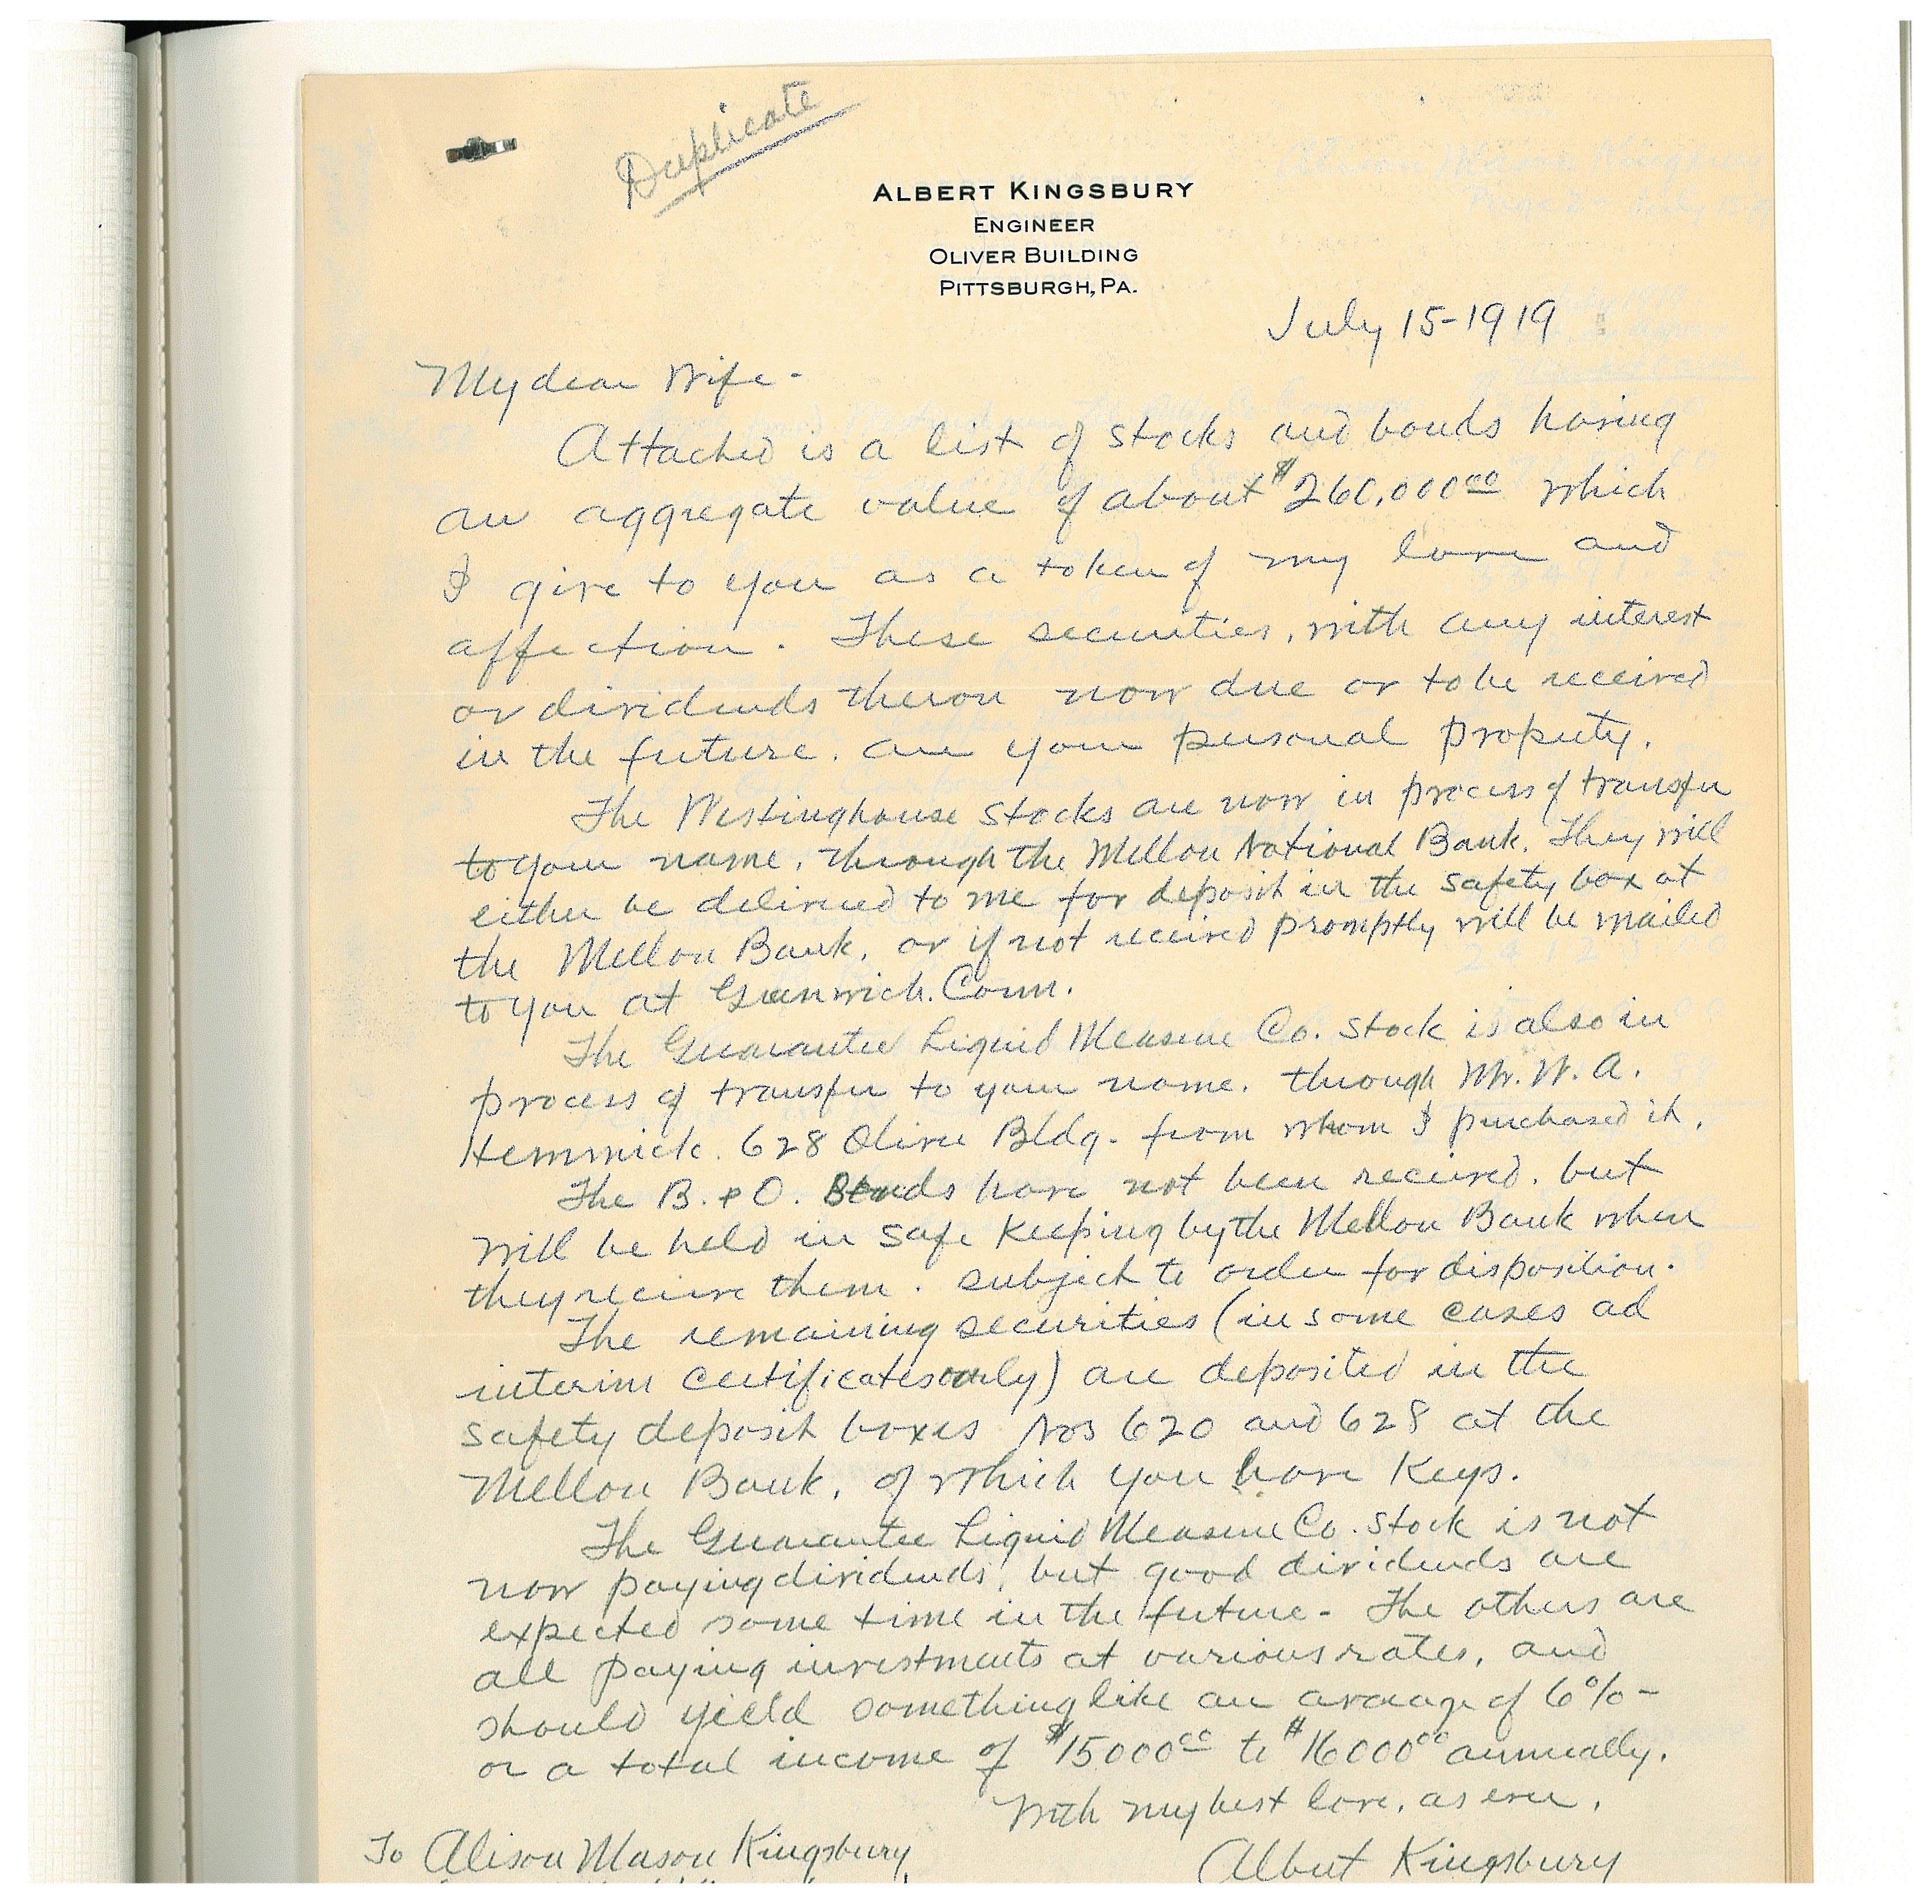 Duplicate
ALBERT KINGSBURY
ENGINEER
OLIVER BUILDING
PITTSBURGH, PA.
July 15-1919
My dear Wife-
Attached is a list of stocks and bonds having
an aggregate value of about $260,000.00 which
I give to you as a token of my love and
affection. These securities, with any interest
or dividends theron now due or to be received
in the future, are your personal property.
The Westinghouse stocks are now in process of transfer
to your name, through the Mellon National Bank. They will
either be delivered to me for deposit in the safety box at
the Mellon Bank, or if not received promptly will be mailed
to you at Greenwich, Conn.
The Guarantee Liquid Measure Co. stock is also in
process of transfer to your name, through Mr. W. A.
Hemmick, 628 Oliver Bldg. from whom I purchased it.
The B. & O. Bonds have not been received, but
will be held in safe keeping by the Mellon Bank when
they receive them, subject to order for disposition.
The remaining securities (in some cases ad
interim certificates only) are deposited in the
safety deposit boxes Nos 620 and 628 at the
Mellon Bank, of which you have keys.
The Guarantee Liquid Measure Co. stock is not
now paying dividends, but good dividends are
expected some time in the future - The others are
all paying investments at various rates, and
should yield something like an average of 6% -
or a total income of $15000.00 to $16000.00 annually.
With my best love, as ever,
To Alison Mason Kingsbury
Albert Kingsbury